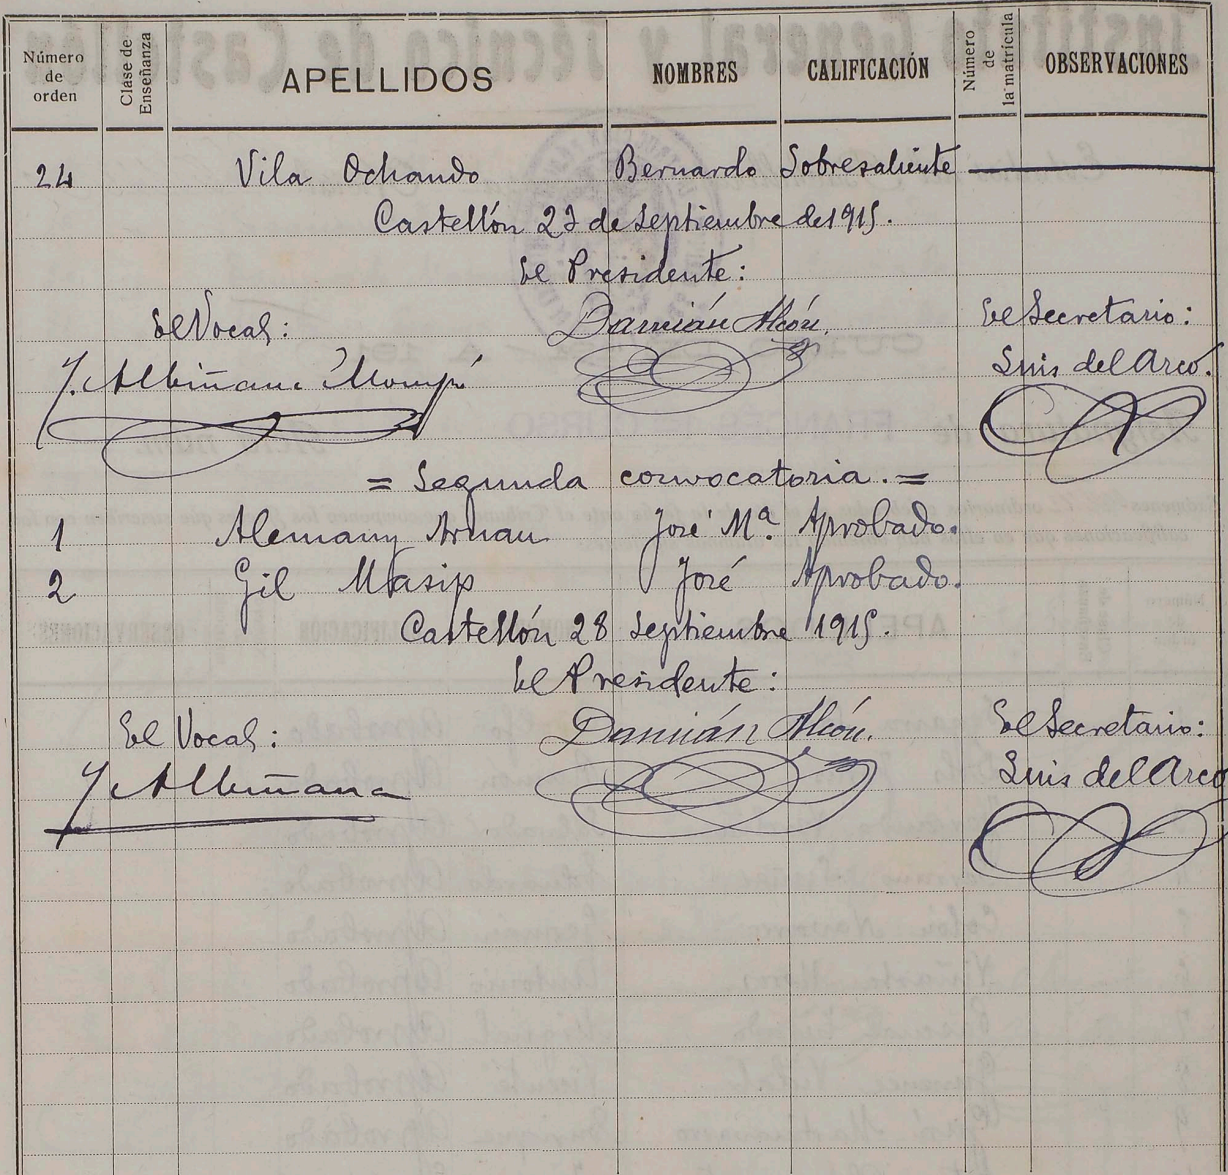 Número de orden Clase de Enseñanza APELLIDOS NOMBRES CALIFICACIÓN Número de la matrícula OBSERVACIONES
24 Vila Ochando Bernardo Sobresaliente
Castellón 23 de Septiembre de 1915.
El Presidente:
El Vocal: Damián Alcón. El Secretario:
J. Albiñana Mompó Luis del Arco.
= Segunda convocatoria. =
1 Alemany Arnau José Mª Aprobado.
2 Gil Masip José Aprobado.
Castellón 28 Septiembre 1915.
El Presidente:
El Vocal: Damián Alcón. El Secretario:
J Albiñana Luis del Arco